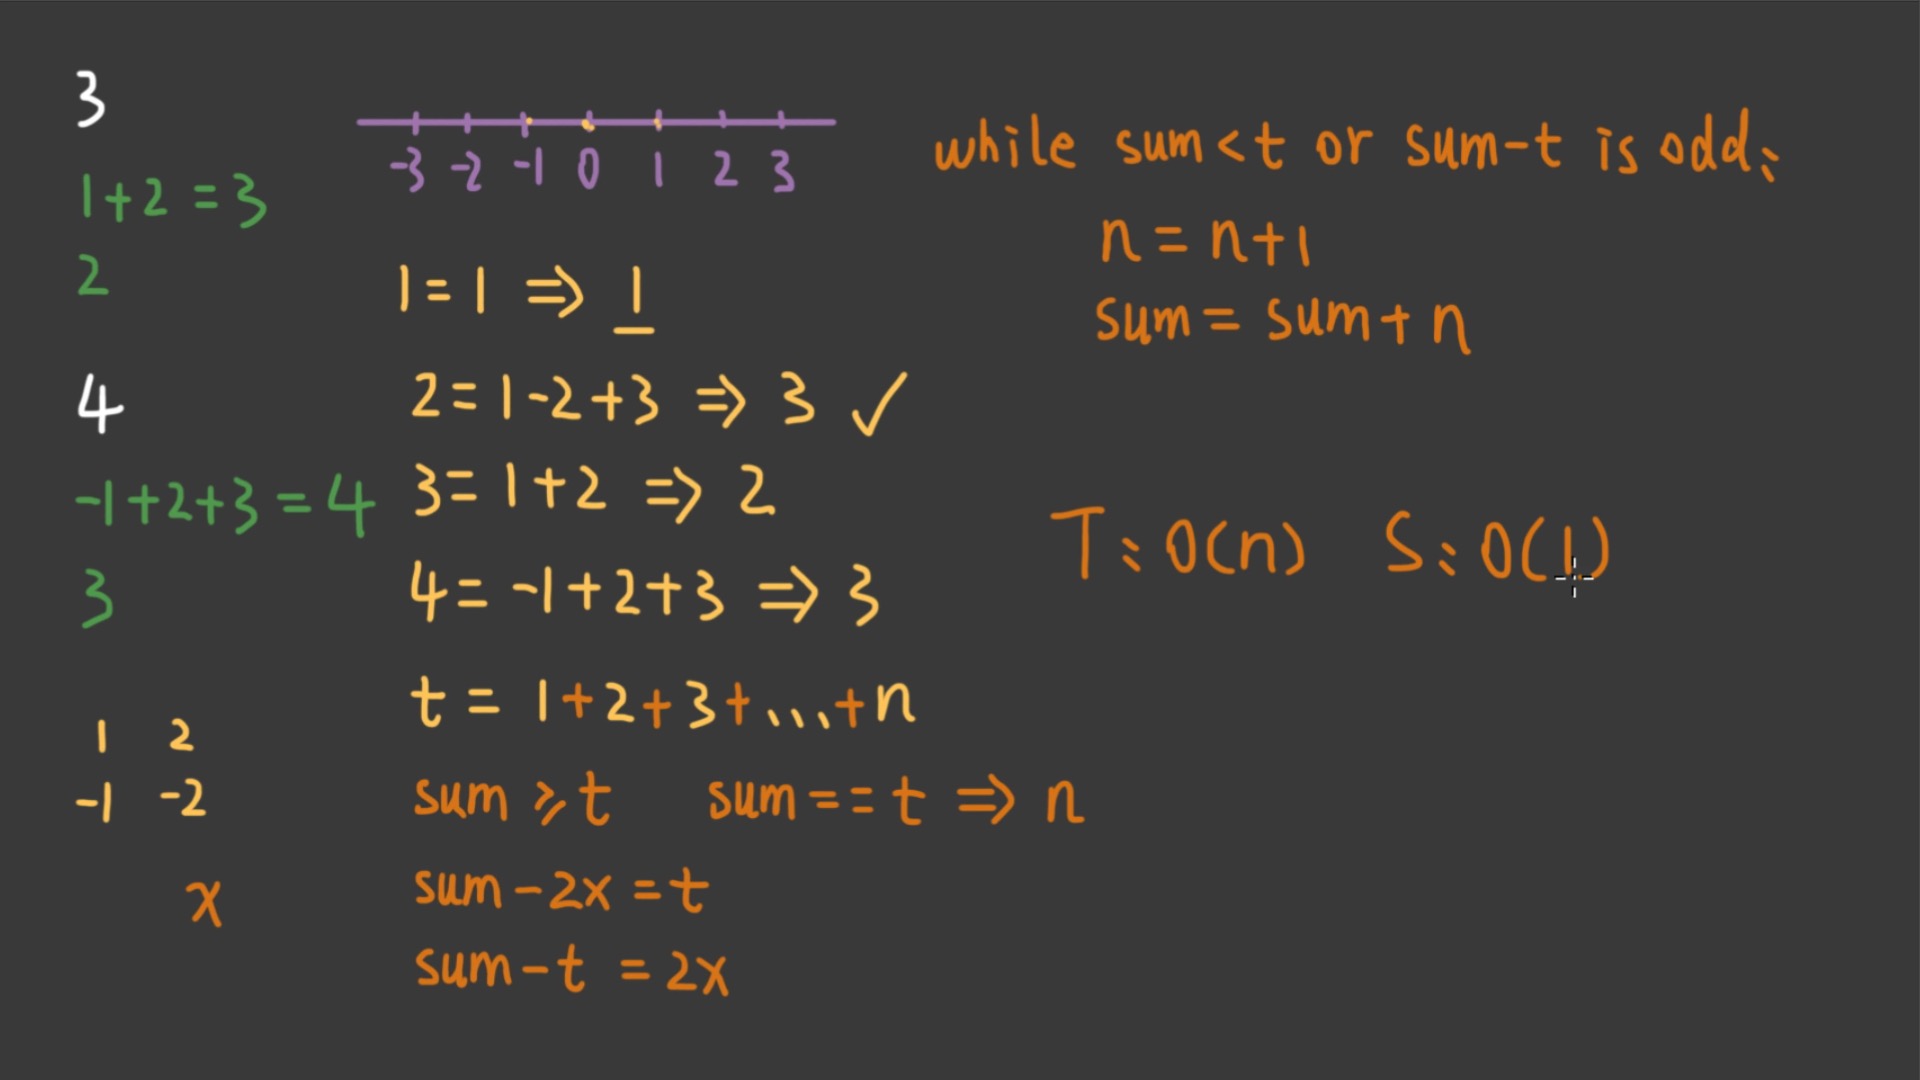 3
1+2=3
2
4
-1+2+3=4
3
1 2
-1 -2
x
-3 -2 -1 0 1 2 3
1=1 ⇒ 1
2=1-2+3 ⇒ 3 ✓
3=1+2 ⇒ 2
4=-1+2+3 ⇒ 3
t = 1+2+3+...+n
sum ⩾ t sum==t ⇒ n
sum-2x=t
sum-t=2x
while sum<t or sum-t is odd:
n=n+1
sum=sum+n
T:O(n) S:O(1)